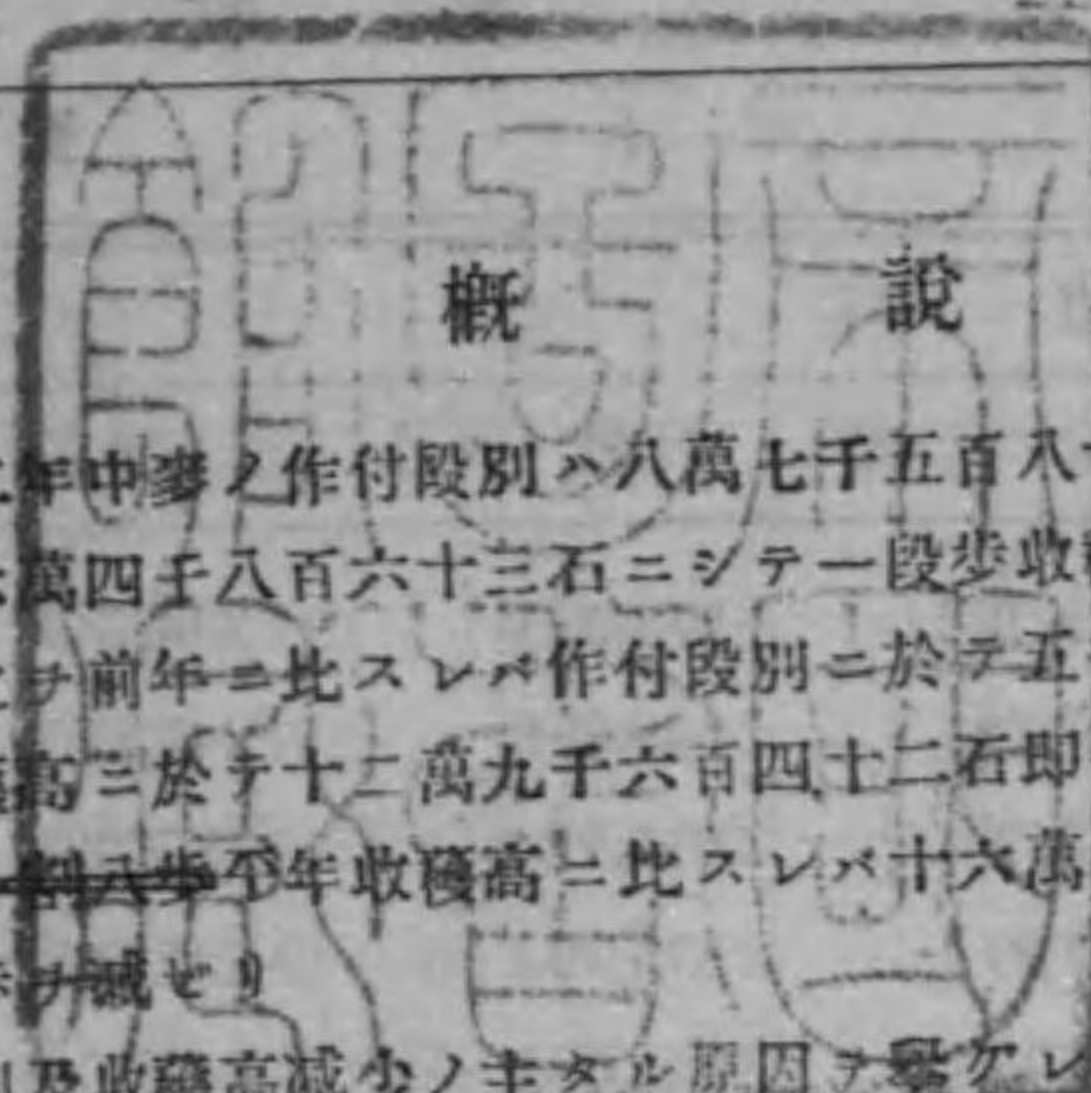 概 説
年中麥ノ作付段別ハ八萬七千五百八
萬四千八百六十三石ニシテ一段歩收
ヲ前年ニ比スレバ作付段別ニ於テ五
高ニ於テ十二萬九千六百四十二石即
割八歩平年收穫高ニ比スレバ十六萬
ヲ減ゼリ
及收穫高減少ノ主タル原因ヲ擧グレ